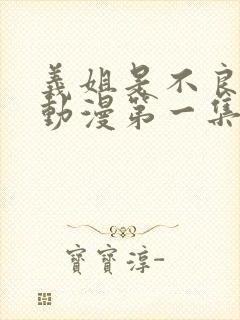 義姐是不良
動漫第一集
寶寶淳-